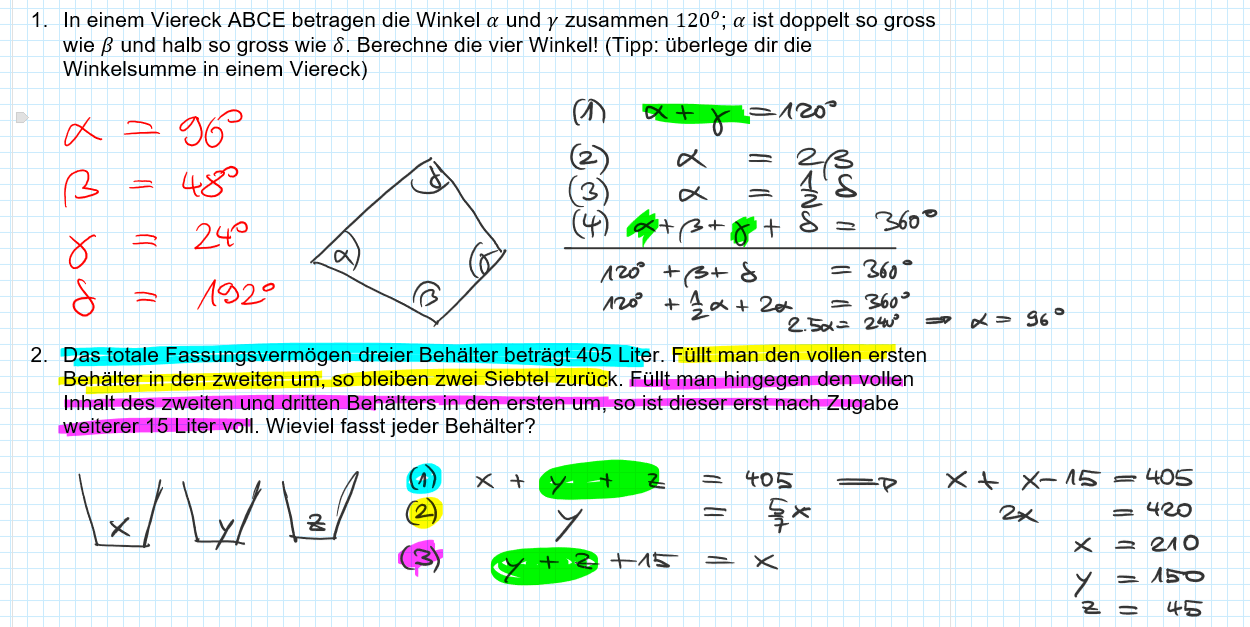 1. In einem Viereck ABCE betragen die Winkel α und γ zusammen 120°; α ist doppelt so gross
wie β und halb so gross wie δ. Berechne die vier Winkel! (Tipp: überlege dir die
Winkelsumme in einem Viereck)
α = 96°
β = 48°
γ = 24°
δ = 192°
δ
α
γ
β
(1) α + γ = 120°
(2) α = 2β
(3) α = 1/2 δ
(4) α + β + γ + δ = 360°
120° + β + δ = 360°
120° + 1/2 α + 2α = 360°
2.5α = 240° ⇒ α = 96°
2. Das totale Fassungsvermögen dreier Behälter beträgt 405 Liter. Füllt man den vollen ersten
Behälter in den zweiten um, so bleiben zwei Siebtel zurück. Füllt man hingegen den vollen
Inhalt des zweiten und dritten Behälters in den ersten um, so ist dieser erst nach Zugabe
weiterer 15 Liter voll. Wieviel fasst jeder Behälter?
x y z
(1) x + y + z = 405 ⇒ x + x - 15 = 405
(2) y = 5/7 x
(3) y + z + 15 = x
2x = 420
x = 210
y = 150
z = 45